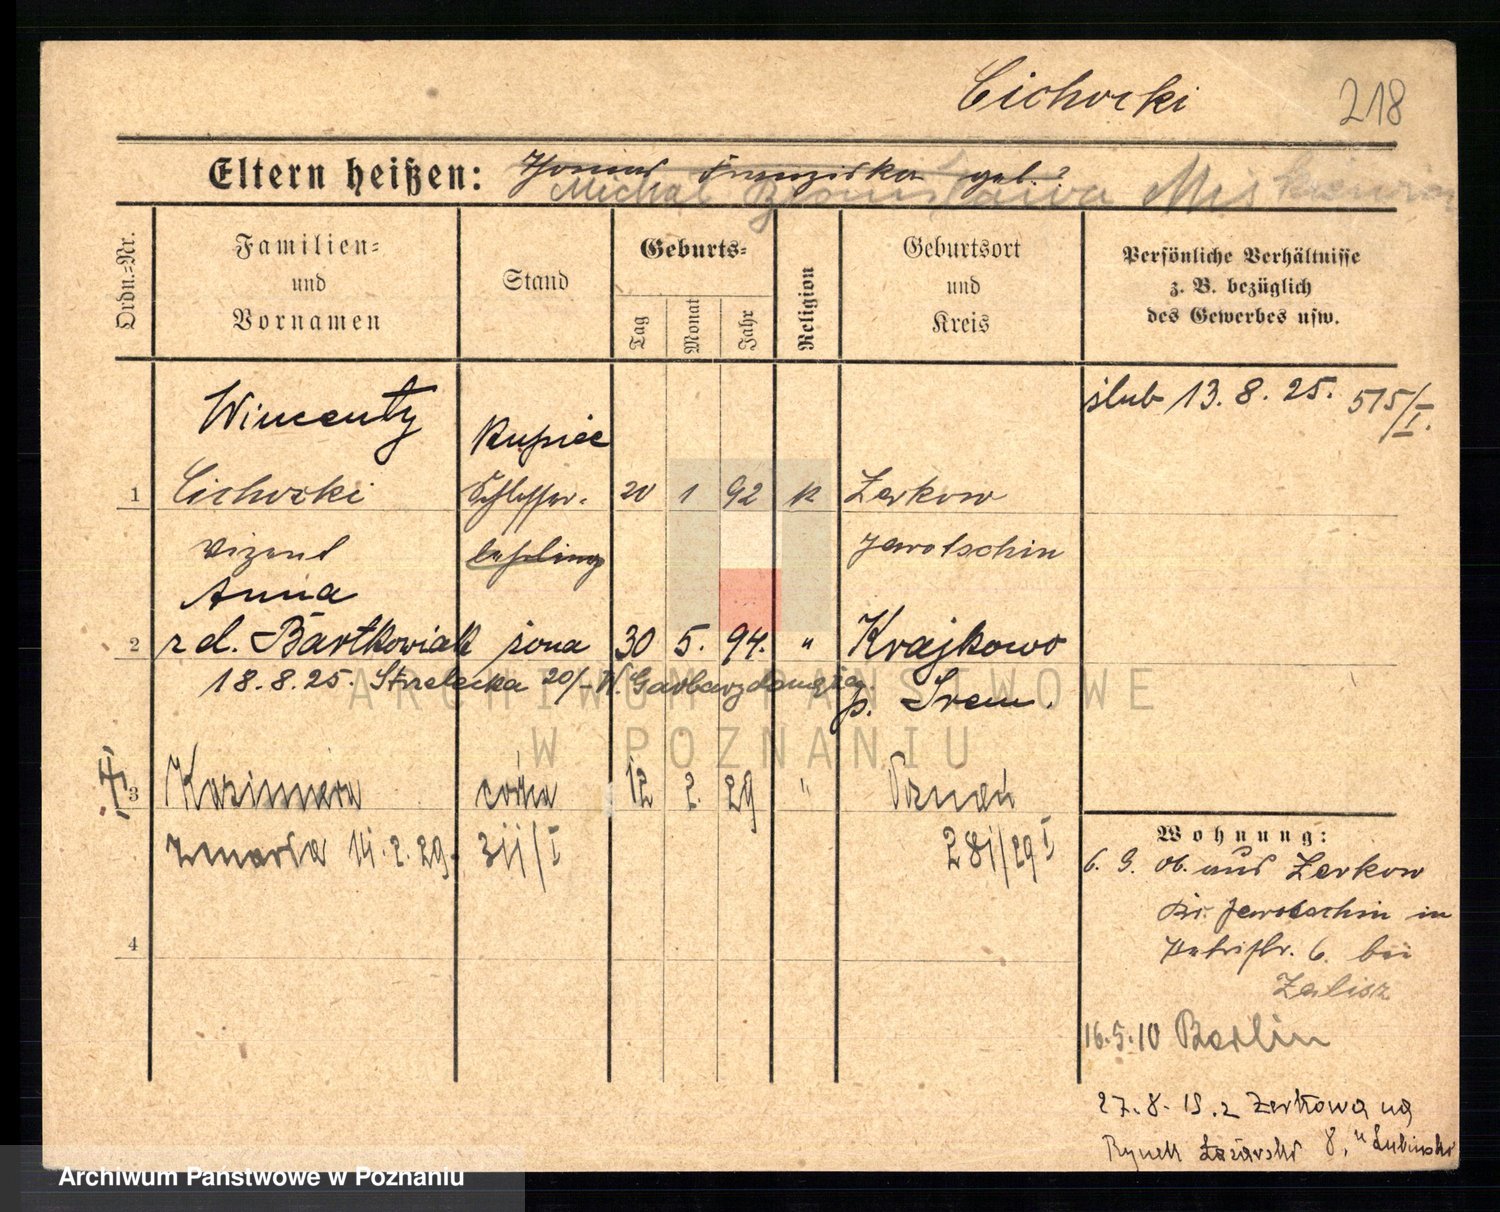 Cichocki 218
Eltern heißen: Thomas Franziska geb. ?
Michał Bronisława Mis
Ordn.=Nr.
Familien=
und
Vornamen
Stand
Geburts=
Tag
Monat
Jahr
Religion
Geburtsort
und
Kreis
Persönliche Verhältnisse
z. B. bezüglich
des Gewerbes usw.
Wincenty kupiec ślub 13.8.25. 515/I.
1 Cichocki Schlosser- 20 1 92 k Zerkow
Vizent lehrling Jarotschin
Anna
2 z d. Bartkowiak żona 30 5. 94. " Krajkowo
18.8.25. Strzelecka 20/- W. Garbary
p. Śrem.
3 Kazimiera córka 12 2. 29 " Poznań
zmarła 14.2.29. 311/I 281/29 I
4
Wohnung:
6. 9. 06. aus Zerkow
Kr. Jarotschin in
6. bei
Zalisz
16.5.10 Berlin
27.8.19. z Żerkowa na
Rynek Łazarski 8, "
ARCHIWUM PAŃSTWOWE
W POZNANIU
Archiwum Państwowe w Poznaniu